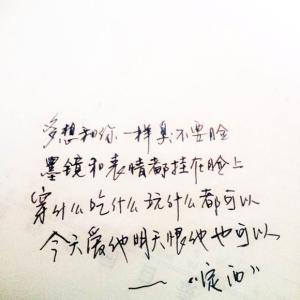 多想和你一样臭不要脸
墨镜和表情都挂在脸上
穿什么吃什么玩什么都可以
今天爱他明天恨他也可以
— “定西”